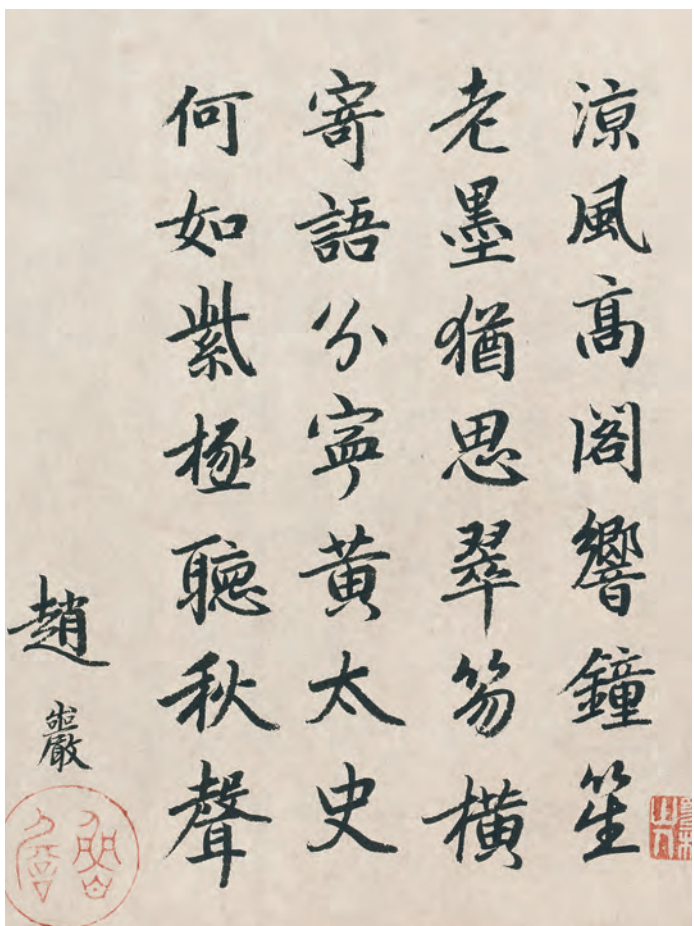 涼風高閣響鐘笙
老墨猶思翠笏橫
寄語分寧黃太史
何如紫極聽秋聲
趙巖